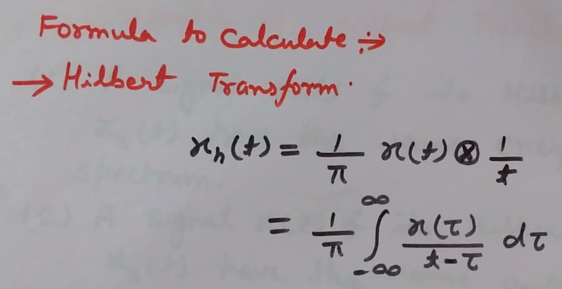 Formula to Calculate :->
→ Hilbert Transform.
xₕ(t) = 1/π x(t) ⊗ 1/t
= 1/π ∫_{-∞}^{∞} x(τ)/(t-τ) dτ